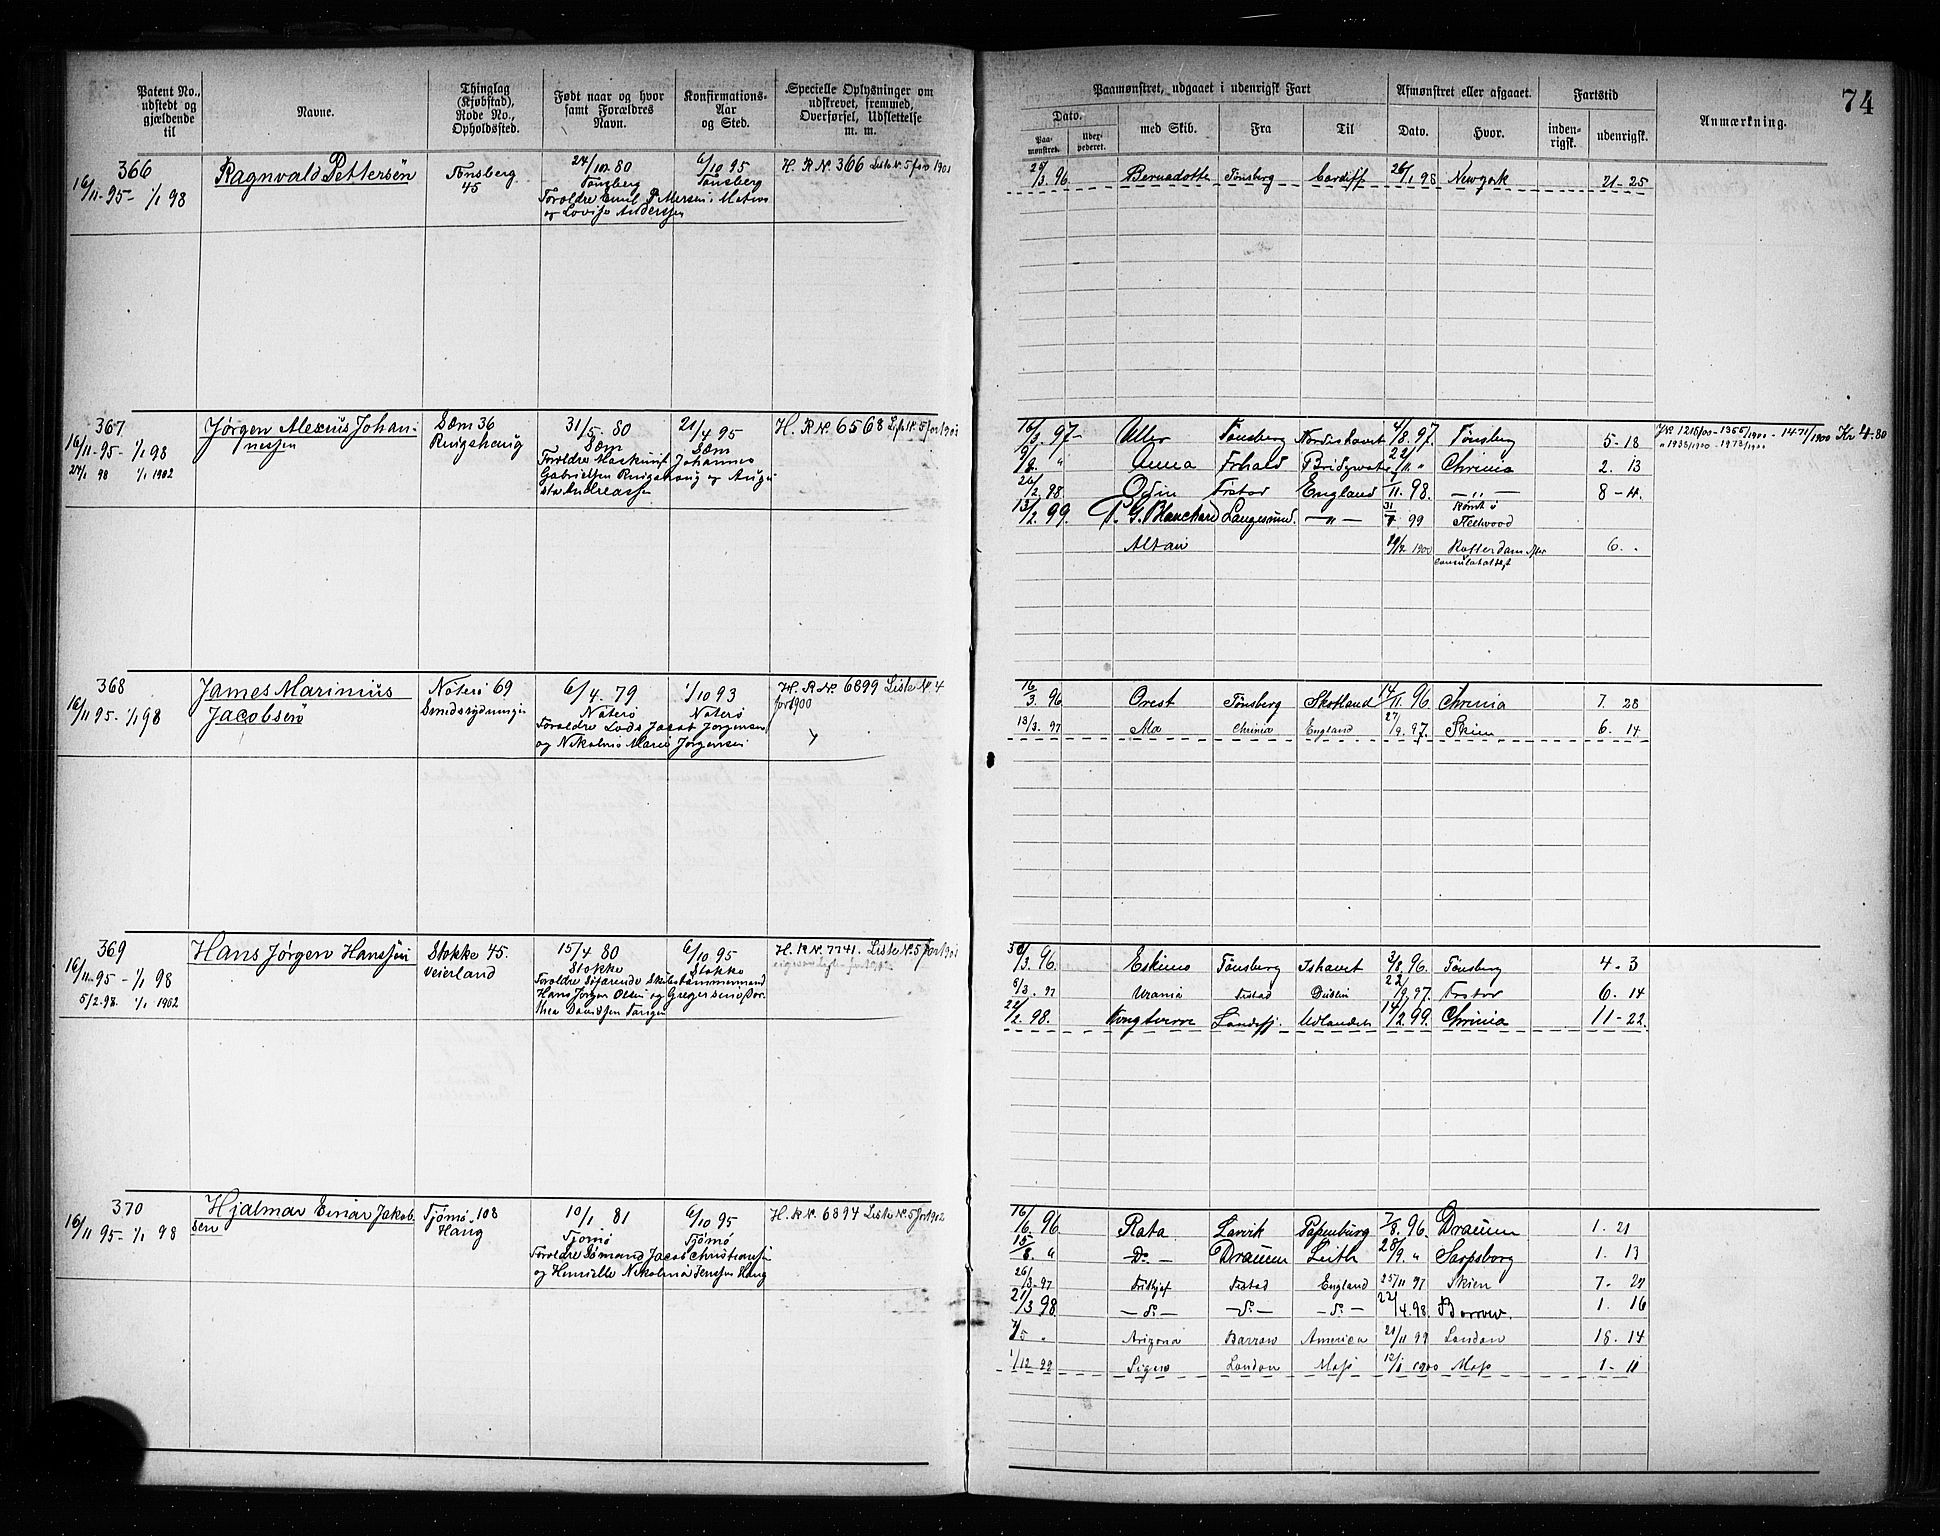 74
Patent No., udstedt og gjældende til
Navne.
Thinglag (Kjøbstad), Rode No., Opholdssted.
Født naar og hvor samt Forældres Navn.
Konfirmations-Aar og Sted.
Specielle Oplysninger om udskrevet, fremmed, Overførsel, Udslettelse m. m.
Paamønstret, udgaaet i udenrigsk Fart
Afmønstret eller afgaaet.
Fartstid
Anmærkning.
Dato.
Paamønstret.
med Skib.
Fra
Til
Dato.
Hvor.
indenrigsk.
udenrigsk.
366
16/11-95- 1/1 98
Ragnvald Pettersen
Tønsberg 45
24/10 80
Tønsberg
6/10 95
Tønsberg
Forældre Emil Pettersen
og Lovise Anderssen
H. R N. 366 Liste N. 5 for 1901
25/3 96 Bernadotte Tønsberg Cardiff 26/1 98 Newyork 21-25
367
16/11-95- 1/1 98
24/1 98 1/1 1902
Jørgen Alexius Johannessen
Sæm 36
Ringshaug
31/5. 80
Sæm
21/4 95
Sæm
Forældre Maskinist Johannes
Gabrielsen Ringshaug og Augusta Andreassen
H. R N. 6568 Liste N. 5 for 1901
16/3. 97- Uller Tønsberg Nordishavet 4/8. 97. Tønsberg 5-18
9/8. " Anna Frhald Bridgwater 22/11. " Chrinia 2. 13
26/2 98 Odin Frstad England 1/11. 98. — „ — 8-4.
13/2. 99. P. G. Blanchard Langesund. — „ — 31/7 99 Rømt i Fleetwood
Altair 29/7 1900 Rotterdam 6.
J.N. 1215/00 - 1355/1900 - 1471/1900 Kr 4.80
" 1938/1900 1973/1900
368
16/11 95- 1/1 98
James Marinius Jacobsen
Nøterø 69
Smidsrydningen
6/4. 79
Nøterø
1/10 93
Nøterø
Forældre Lods Jacob Jørgensen
og Nikoline Marie Jørgensen
H. R N. 6899 Liste N 4
for 1900
16/3. 96 Orest Tønsberg Skotland 14/11. 96 Chrinia 7. 28
13/3. 97 Ma Chrinia England 27/9. 97. Skien 6. 14
369
16/11-95 - 1/1 98
5/2. 98. 1/1 1902
Hans Jørgen Hanssen
Stokke 45.
Veierland
15/4 80
Stokke
6/10 95
Stokke
Forældre Søfarende Skibstømmermand
Hans Jørgen Olsen og Gregersine Dorthea Davidsen
H. R N. 7741. Liste N. 5 for 1901
30/3. 96. Eskimo Tønsberg Ishavet 3/8. 96. Tønsberg 4-3
8/3. 97 Urania Frstad Dublin 22/9. 97. Frstad 6. 14
21/2. 98. Kongsverre Sandefj. Udlandet 14/2. 99. Chrinia 11-22
370
16/11. 95- 1/1 98
Hjalmar Einar Jakobsen
Tjømø 108
Haug
10/1. 81
Tjømø
6/10 95
Tjømø
Forældre Sømand Jacob Christiansen
og Henrikke Nikoline Jensen Haug
H. R N. 6894 Liste N. 5 for 1902
16/6. 96 Rata Larvik Papenburg 7/8. 96. Dramm 1. 21
15/8. " Do — Dramm Leith 28/9. " Sarpsborg 1. 13
26/3. 97 Fridthjof Frstad England 25/11 97 Skien 7. 29
21/3 98 — d. — — d. — — d. — 22/4. 98 Barrow. 1. 16
7/5 " Arizona Barrow America 21/11 99 London 18. 14
1/12 99 Sigrid London Moss 12/1 1900 Moss 1-11